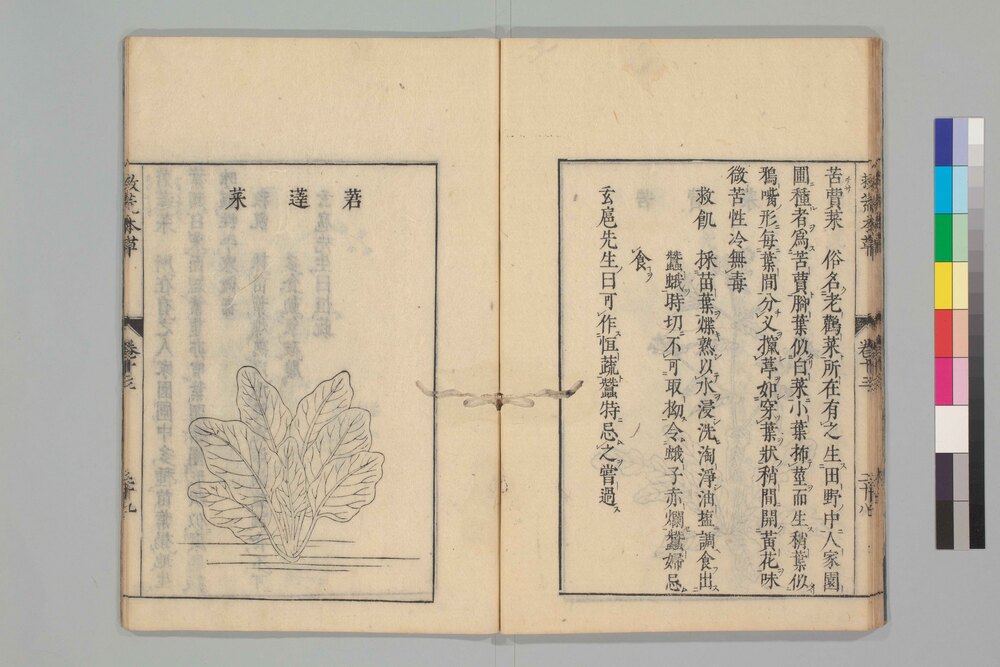 苦蕒菜　俗名老鸛菜所在有之生田野中人家園
圃種者爲苦蕒脚葉似白菜小葉抪莖而生稍葉似
鴉嘴形毎葉間分叉攛葶如穿葉狀稍間開黃花味
微苦性冷無毒
救飢　採苗葉煠熟以水浸洗淘淨油塩調食出
蠶蛾時切不可取拗令蛾子赤爛蠶婦忌
食
玄扈先生曰可作恒蔬蠶特忌之嘗過
救荒本草
卷十三
三十八
莙薘菜
救荒本草
卷十三
三十九